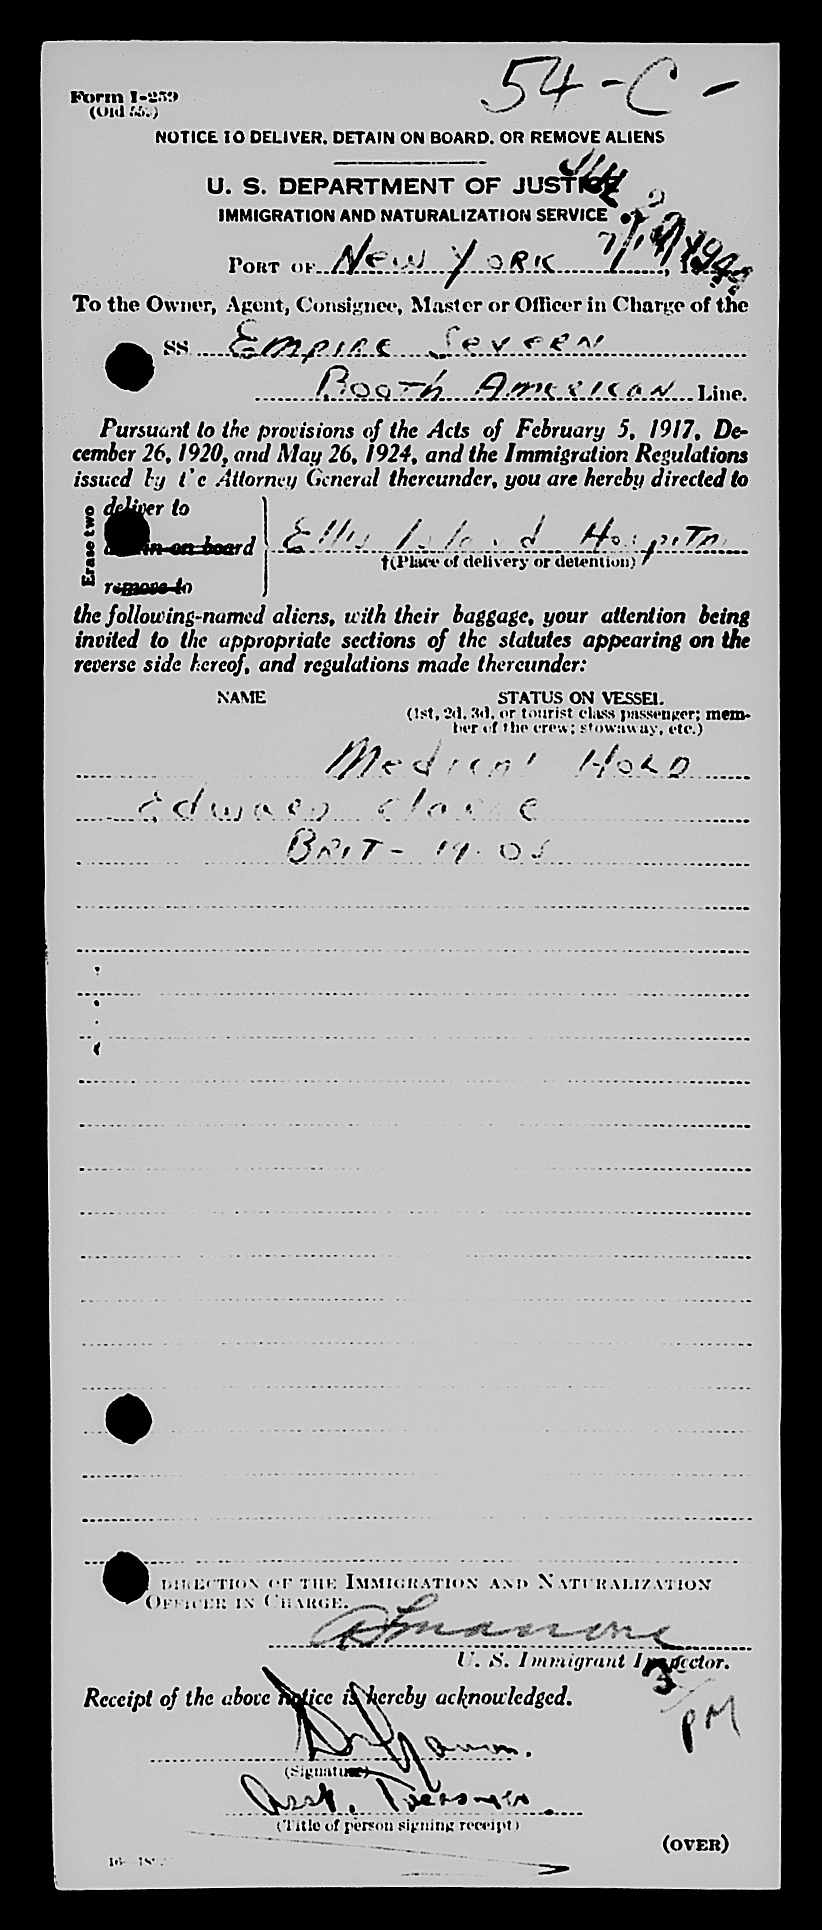 54-C-
Form I-259
(Old 555)
NOTICE TO DELIVER, DETAIN ON BOARD, OR REMOVE ALIENS
U. S. DEPARTMENT OF JUSTICE
IMMIGRATION AND NATURALIZATION SERVICE
PORT OF New York
To the Owner, Agent, Consignee, Master or Officer in Charge of the
SS. Empire Severn
Booth American Line.
Pursuant to the provisions of the Acts of February 5, 1917, De-
cember 26, 1920, and May 26, 1924, and the Immigration Regulations
issued by the Attorney General thereunder, you are hereby directed to
Erase two
deliver to
on board
remove to
Ellis Island Hospital
†(Place of delivery or detention)
the following-named aliens, with their baggage, your attention being
invited to the appropriate sections of the statutes appearing on the
reverse side hereof, and regulations made thereunder:
NAME STATUS ON VESSEL
(1st, 2d, 3d, or tourist class passenger; mem-
ber of the crew; stowaway, etc.)
Medical Hold
Edward
BRIT-
DIRECTION OF THE IMMIGRATION AND NATURALIZATION
OFFICER IN CHARGE.
U. S. Immigrant Inspector.
3
PM
Receipt of the above notice is hereby acknowledged.
(Signature)
Asst. Treasurer
(Title of person signing receipt)
(OVER)